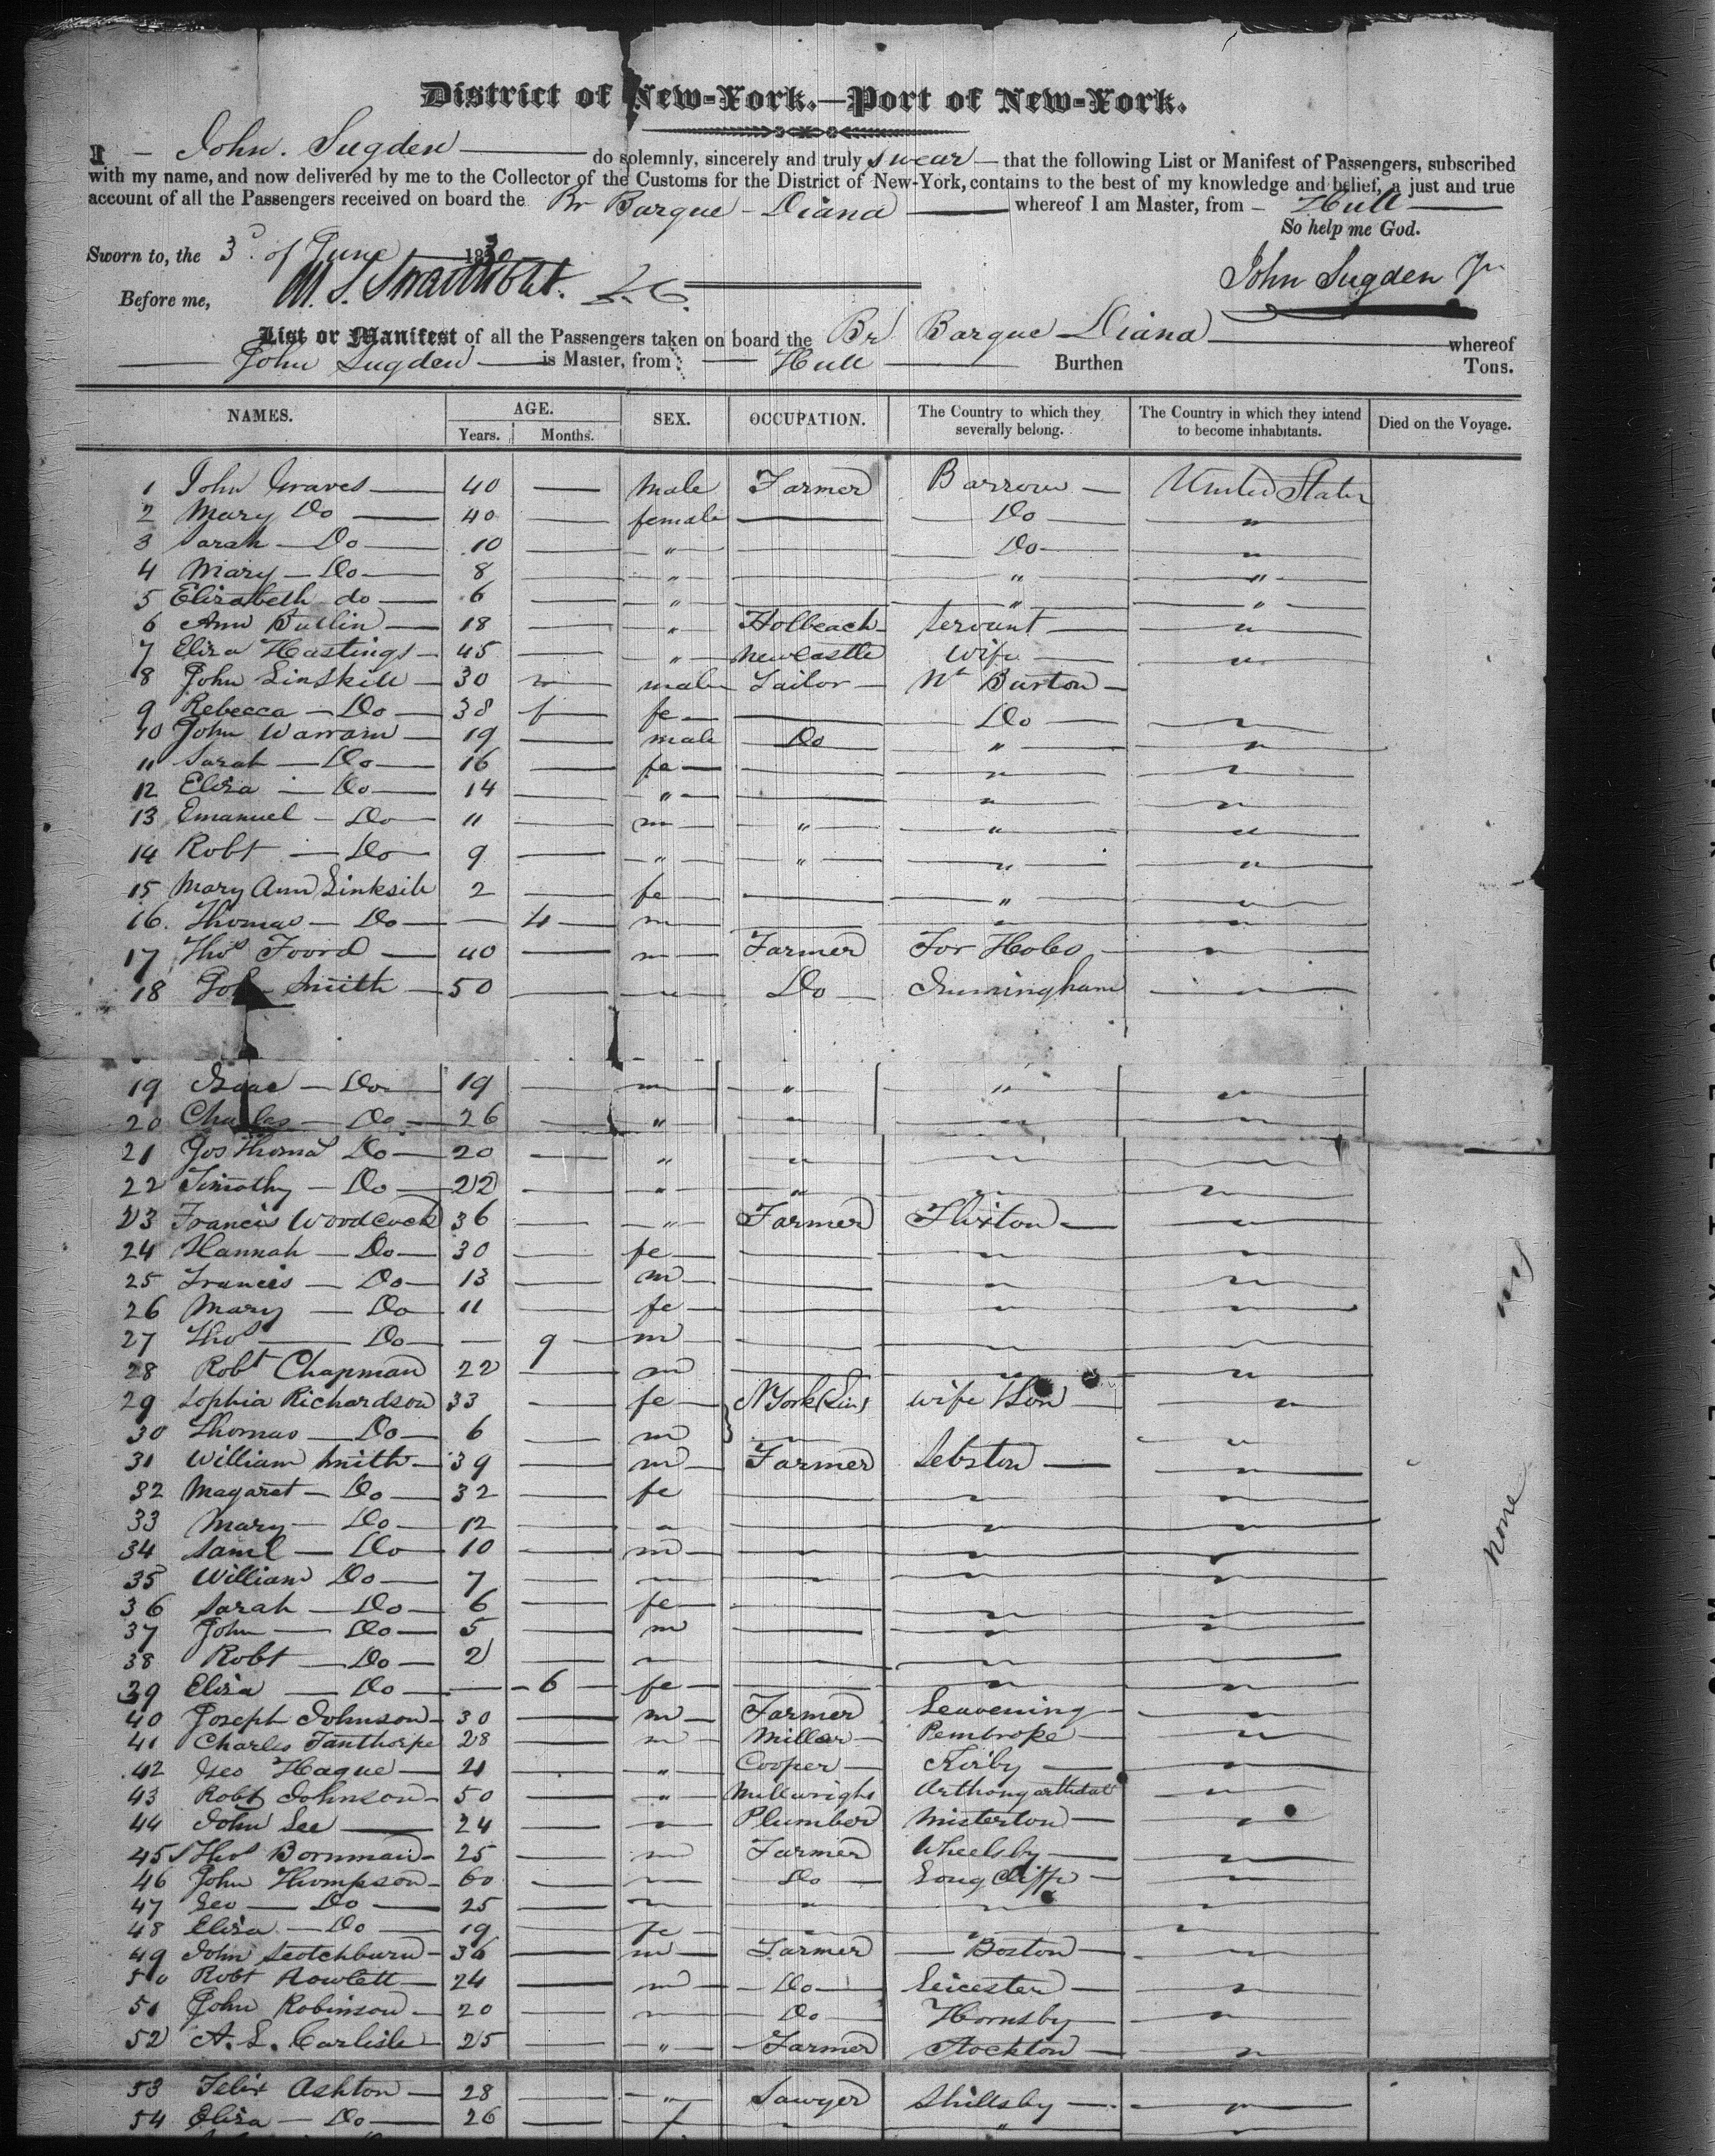 District of New-York.—Port of New-York.
I — John. Sugden — do solemnly, sincerely and truly swear — that the following List or Manifest of Passengers, subscribed
with my name, and now delivered by me to the Collector of the Customs for the District of New-York, contains to the best of my knowledge and belief, a just and true
account of all the Passengers received on board the Br Barque - Diana — whereof I am Master, from — Hull —
So help me God.
Sworn to, the 3d of June 1830
John Sugden Jr
Before me,
List or Manifest of all the Passengers taken on board the Br Barque Diana — whereof
— John Sugden — is Master, from — Hull — Burthen Tons.
NAMES. AGE. SEX. OCCUPATION. The Country to which they severally belong. The Country in which they intend to become inhabitants. Died on the Voyage.
Years. Months.
1 John Graves — 40 — Male Farmer Barrow — United States
2 Mary Do — 40 — female — Do — "
3 Sarah — Do — 10 — " — Do — "
4 Mary — Do — 8 — " — " — "
5 Elizabeth do — 6 — " — " — "
6 Ann — 18 — " Holbeach Servant — "
7 Eliza Hastings — 45 — " Newcastle Wife — "
8 John Linskill — 30 — male Tailor — Burton —
9 Rebecca — Do — 38 — fe — Do — "
10 John Warram — 19 — male Do " "
11 Sarah — Do — 16 — fe — " "
12 Eliza — Do — 14 — " — " "
13 Emanuel — Do — 11 — m " " "
14 Robt — Do — 9 — " " " "
15 Mary Ann Linksill 2 — fe — " "
16. Thomas — Do — 4 — m — " "
17 Thos Foord — 40 — m — Farmer "
18 Smith — 50 — " Do "
19 Isaac — Do — 19 — m " " "
20 Charles — Do — 26 — " " " "
21 Jos Thomas Do — 20 — " " " "
22 Timothy — Do — 22 — " " " "
23 Francis Woodcock 36 — " Farmer Flixton — "
24 Hannah — Do — 30 — fe — " "
25 Francis — Do — 13 — m — " "
26 Mary — Do 11 — fe — " "
27 Thos — Do — 9 — m — " "
28 Robt Chapman 22 — m — " "
29 Sophia Richardson 33 — fe — N York wife & Son — "
30 Thomas — Do — 6 — m "
31 William Smith — 39 — m — Farmer — "
32 Magaret — Do — 32 — fe — " "
33 Mary — Do — 12 — " — " "
34 Saml — Do — 10 — m " " "
35 William Do — 7 — " " " "
36 Sarah — Do — 6 — fe — " "
37 John — Do — 5 — m — " "
38 Robt — Do — 2 — " — " "
39 Eliza — Do — 6 — fe — " "
40 Joseph Johnson — 30 — m — Farmer Leavening — "
41 Charles Fanthorpe 28 — m — Miller — Pembroke — "
42 Geo Hague — 21 — " Cooper — Kirby — "
43 Robt Johnson — 50 — " Millwright "
44 John Lee — 24 — " Plumber Misterton — "
45 Thos Bornman — 25 — m Farmer Wheelsby — "
46 John Thompson — 60 — " Do Long Cliffe — "
47 Geo — Do — 25 — " " " "
48 Eliza — Do — 19 — fe — " "
49 John Scotchburn — 36 — m — Farmer — Boston — "
50 Robt Rowlett — 24 — m — Do — Leicester — "
51 John Robinson — 20 — " Do Hornsby — "
52 A. L. Carlisle — 25 — " Farmer Stockton — "
53 Felix Ashton — 28 — " Sawyer Skillsby — "
54 Eliza — Do — 26 — f " " "
none